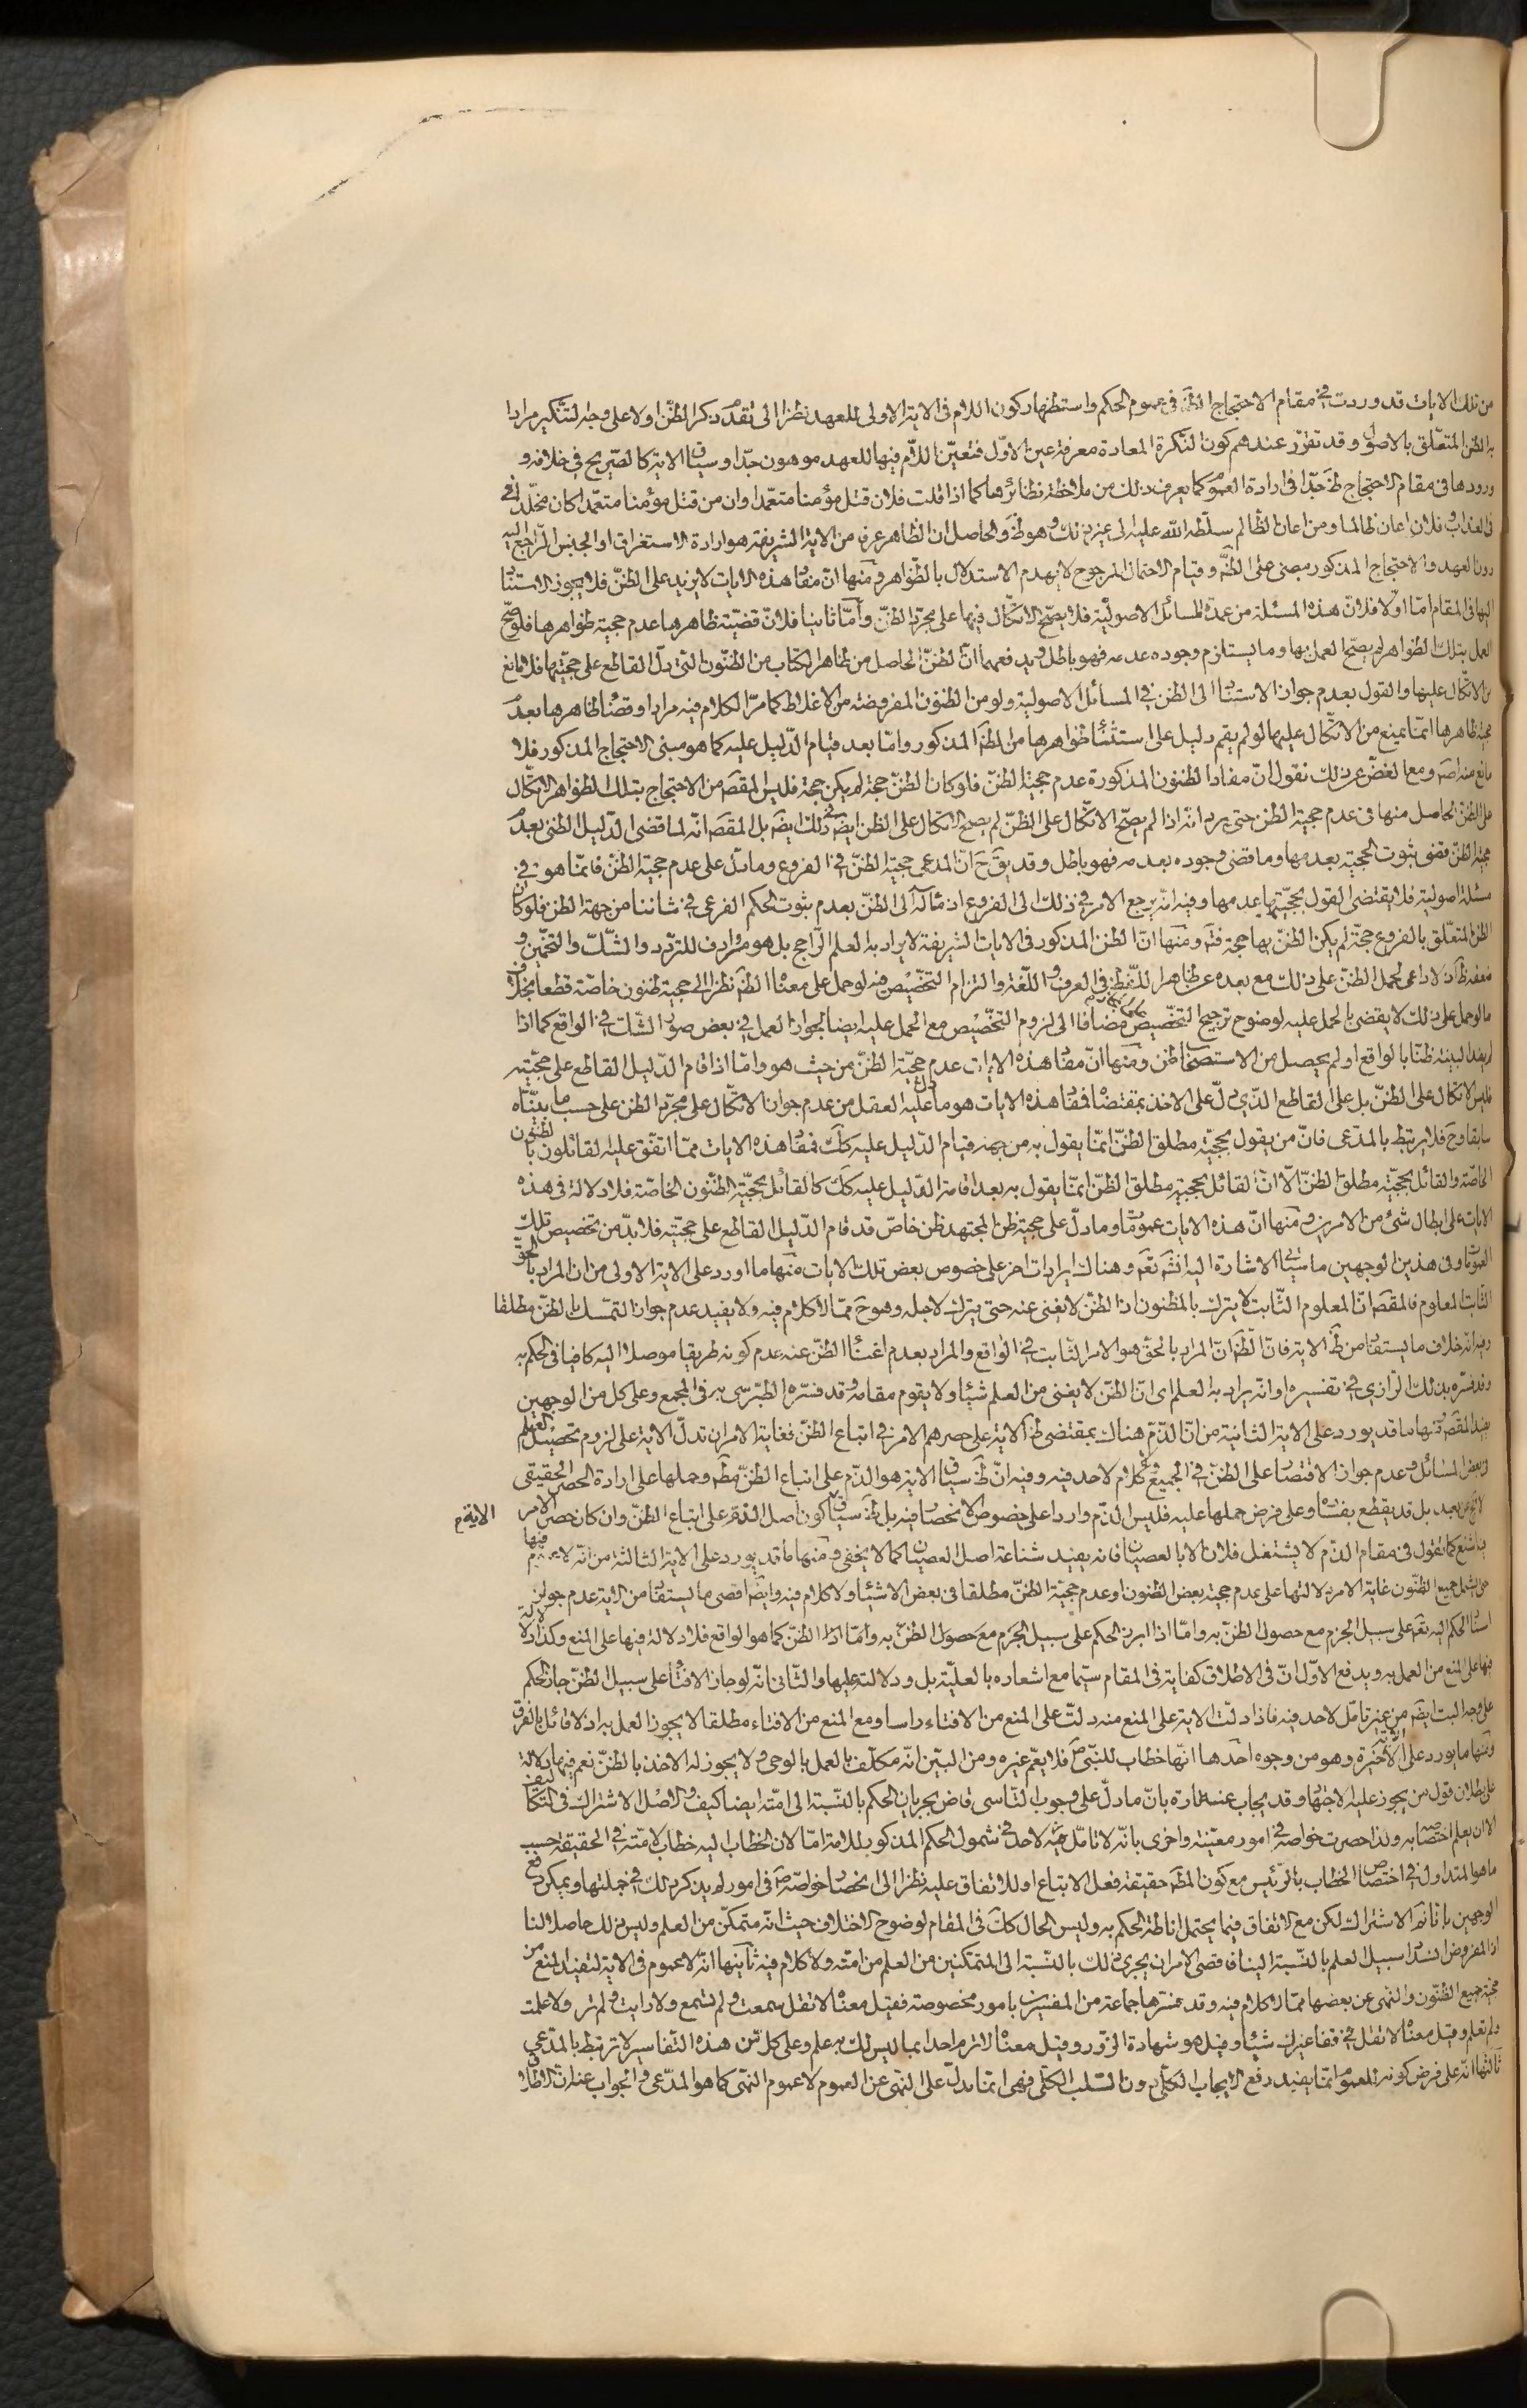 من تلك الايات قد وردت في مقام الاحتجاج الظَ في عموم الحكم واستظهار كون اللام في الاية الاولى للعهد نظرا الى تقدم ذكر الظن اولا على وجه التنكير مرادا
به الظن المتعلق بالاصول وقد تقرر عندهم كون النكرة المعادة معرفة عين الاول فتعين اللام فيها للعهد موهون جدا وسياق الاية كالصريح في خلافه و
ورودها في مقام الاحتجاج ظَ جدا في ارادة العموم كما يعرف ذلك من ملاحظة نظائرها كما اذا قلت فلان قتل مؤمنا متعمدا وان من قتل مؤمنا متعمدا كان مخلدا في
في العذاب وفلان اعان ظالما ومن اعان الظالم سلطه الله عليه الى غير ذلك وهو ظَ والحاصل ان الظاهر عرفا من الاية الشريفة هو ارادة الاستغراق او الجنس الراجع اليه
دون العهد والاحتجاج المذكور مبنى على الظَ وقيام الاحتمال المرجوح لا يهدم الاستدلال بالظواهر ومنها ان مفاد هذه الايات لا يزيد على الظن فلا يجوز الاستناد
اليها في المقام اما اولا فلان هذه المسئلة من عمدة المسائل الاصولية فلا يصح الاتكال فيها على مجرد الظن واما ثانيا فلان قضية ظاهرها عدم حجية ظواهرها فلو صح
العمل بتلك الظواهر لم يصح العمل بها وما يستلزم وجوده عدمه فهو باطل ويدفعهما ان الظن الحاصل من ظاهر الكتاب من الظنون التي دل القاطع على حجيتها فلا مانع
من الاتكال عليها والقول بعدم جواز الاستناد الى الظن في المسائل الاصولية ولو من الظنون المفروضة من الاغلاط كما مر الكلام فيه مرارا وقضاء ظاهرها بعدم
حجية ظاهرها انما يمنع من الاتكال عليها لو لم يقم دليل على استثناء ظواهرها من الظن المذكور واما بعد قيام الدليل عليه كما هو مبنى الاحتجاج المذكور فلا
مانع منه اصَ ومع الغض عن ذلك نقول ان مفاد الظنون المذكورة عدم حجية الظن فلو كان الظن حجة لم يكن حجة فليس المقصَ من الاحتجاج بتلك الظواهر الاتكال
على الظن الحاصل منها في عدم حجية الظن حتى يرد انه اذا لم يصح الاتكال على الظن لم يصح الاتكال على الظن في ذلك ايضَ بل المقصَ انه لما قضى الدليل الظنى بعدم
حجية الظن فقضى ثبوت الحجية بعدمها وما قضى وجوده بعدمه فهو باطل وقد يقَ حَ ان المدعى حجية الظن في الفروع وما دل على عدم حجية الظن فانما هو في
مسئلة اصولية فلا يقتضى القول بحجيتها عدمها وفيه انه يرجع الامر في ذلك الى الفروع اذ مآله الى الظن بعدم ثبوت الحكم الفرعى في شاننا من جهة الظن فلو كان
الظن المتعلق بالفروع حجة لم يكن الظن بها حجة فتَ ومنها ان الظن المذكور في الايات الشريفة لا يراد به العلم الراجح بل هو مرادف للتردد والشك والتخمين و
ضعفه ظَ اذ لا داعى لحمل الظن على ذلك مع بعده عن ظاهر اللفظ في العرف واللغة والتزام التخصيص فيه لو حمل على معناه الظَ نظرا الى حجية ظنون خاصة قطعا بخلاف
ما لو حمل على ذلك لا يقضى بالحمل عليه لوضوح ترجيح التخصيص مضافا الى لزوم التخصيص مع الحمل عليه ايضا لجواز العمل في بعض صور الشك في الواقع كما اذا
لم يفد البينة ظنا بالواقع او لم يحصل من الاستصحاب ظن ومنها ان مفاد هذه الايات عدم حجية الظن من حيث هو واما اذا قام الدليل القاطع على حجيته
فليس الاتكال على الظن بل على القاطع الذى دل على الاخذ بمقتضاه فمفاد هذه الايات هو ما دل عليه العقل من عدم جواز الاتكال على مجرد الظن على حسب ما بيناه
سابقا وحَ فلا يرتبط بالمدعى فان من يقول بحجية مطلق الظن انما يقول به من جهة قيام الدليل عليه كلَ فمفاد هذه الايات مما اتفق عليه القائلون بالظنون
الخاصة والقائل بحجية مطلق الظن الا ان القائل بحجية مطلق الظن انما يقول به بعد اقامة الدليل عليه كك كالقائل بحجية الظنون الخاصة فلا دلالة في هذه
الايات على ابطال شئ من الامرين ومنها ان هذه الايات عمومات وما دل على حجية ظن المجتهد ظن خاص قد قام الدليل القاطع على حجيته فلا بد من تخصيص تلك
العمومات وفي هذين الوجهين ما سياتى الاشارة اليه انشَ تعَ وهناك ايرادات اخر على خصوص بعض تلك الايات منها ما اورد على الاية الاولى من ان المراد بالحق
الثابت المعلوم فالمقصَ ان المعلوم الثابت لا يترك بالمظنون اذ الظن لا يغنى عنه حتى يترك لاجله وهو حَ مما لا كلام فيه ولا يفيد عدم جواز التمسك بالظن مطلقا
وفيه انه خلاف ما يستفاد من ظَ الاية فان الظَ ان المراد بالحق هو الامر الثابت في الواقع والمراد بعدم اغناء الظن عنه عدم كونه طريقا موصلا اليه كافيا في الحكم به
وقد فسره بذلك الرازي في تفسيره او انه يراد به العلم اى ان الظن لا يغنى من العلم شيئا ولا يقوم مقامه وقد فسره الطبرسى به في المجمع وعلى كل من الوجهين
يفيد المقصَ ومنها ما قد يورد على الاية الثانية من ان الذم هناك بمقتضى ظَ الاية على حصرهم الامر في اتباع الظن فغاية الامر ان تدل الاية على لزوم تحصيل العلم
في بعض المسائل وعدم جواز الاقتصار على الظن في الجميع ولا كلام لاحد فيه وفيه ان ظَ سياق الاية هو الذم على اتباع الظن مطَ وحملها على ارادة الحصر الحقيقى
لا يخ عن بعد بل قد يقطع بفساده وعلى فرض حملها عليه فليس الذم واردا على خصوص الانحصار فيه بل ظَ سياق الاية كون اصل الذم على اتباع الظن وان كان حصر الامر
به اشنع كما تقول في مقام الذم لا يشتغل فلان الا بالعصيان فانه يفيد شناعة اصل العصيان كما لا يخفى ومنها ما قد يورد على الاية الثالثة من انه لا عموم فيها
حتى يشمل جميع الظنون غاية الامر دلالتها على عدم حجية بعض الظنون او عدم حجية الظن مطلقا في بعض الاشياء ولا كلام فيه وايضَ اقصى ما يستفاد من الاية عدم جواز
اسناد الحكم اليه تعَ على سبيل الجزم مع حصول الظن به واما اذا ابرز الحكم على سبيل الظن كما هو الواقع فلا دلالة فيها على المنع وكذا لا دلالة
فيها على المنع من العمل به ويدفع الاول ان في الاطلاق كفاية في المقام سيما مع اشعاره بالعلية بل ودلالته عليها والثانى انه لو جاز الافتاء على سبيل الظن جاز الحكم
على وجه البت ايضَ من غير تامل لاحد فيه فاذا دلت الاية على المنع منه دلت على المنع من الافتاء راسا ومع المنع من الافتاء مطلقا لا يجوز العمل به اذ لا قائل بالفرق
ومنها ما يورد على الاية الاخيرة وهو من وجوه احدها انها خطاب للنبى صَ فلا يعم غيره ومن البين انه مكلف بالعمل بالوحى ولا يجوز له الاخذ بالظن نعم فيها دلالة
على بطلان قول من يجوز عليه الاجتهاد وقد يجاب عنه تارة بان ما دل على وجوب التاسى قاض بجريان الحكم بالنسبة الى امته ايضا كيف والاصل الاشتراك في التكاليف
الا ان يعلم اختصاصه به ولذا حصرت خواصه في امور معينة واخرى بانه لا تامل فيه لاحد في شمول الحكم المذكور للامة اما لان الخطاب اليه خطاب لامته في الحقيقة حسب
ما هو المتداول في اختصاص الخطاب بالرئيس مع كون المطَ حقيقة فعل الاتباع او للاتفاق عليه نظرا الى انحصار خواصه صَ في امور لم يذكر ذلك في جملتها ويمكن دفع
الوجهين بانا نمَ الاشتراك لكن مع الاتفاق فيما يحتمل اناطة الحكم به وليس الحال كك في المقام لوضوح الاختلاف حيث انه متمكن من العلم وليس ذلك حاصلا لنا
اذ المفروض انسداد سبيل العلم بالنسبة الينا فاقصى الامر ان يجرى ذلك بالنسبة الى المتمكنين من العلم من امته ولا كلام فيه ثانيها انه لا عموم في الاية لتفيد المنع من
حجية جميع الظنون والنهى عن بعضها مما لا كلام فيه وقد فسرها جماعة من المفسرين بامور مخصوصة فقيل معناه لا تقل سمعت ولم تسمع ولا رايت ولم تر ولا علمت
ولم تعلم وقيل معناه لا تقل في قفا غيرك شيئا وقيل هو شهادة الزور وقيل معناه لا ترم احدا بما ليس لك به علم وعلى كل من هذه التفاسير لا ترتبط بالمدعى
ثالثها انه على فرض كونه للعموم انما يفيد رفع الايجاب الكلى دون السلب الكلى فهى انما تدل على النهى عن العموم لا عموم النهى كما هو المدعى والجواب عنه ان الاطلاق